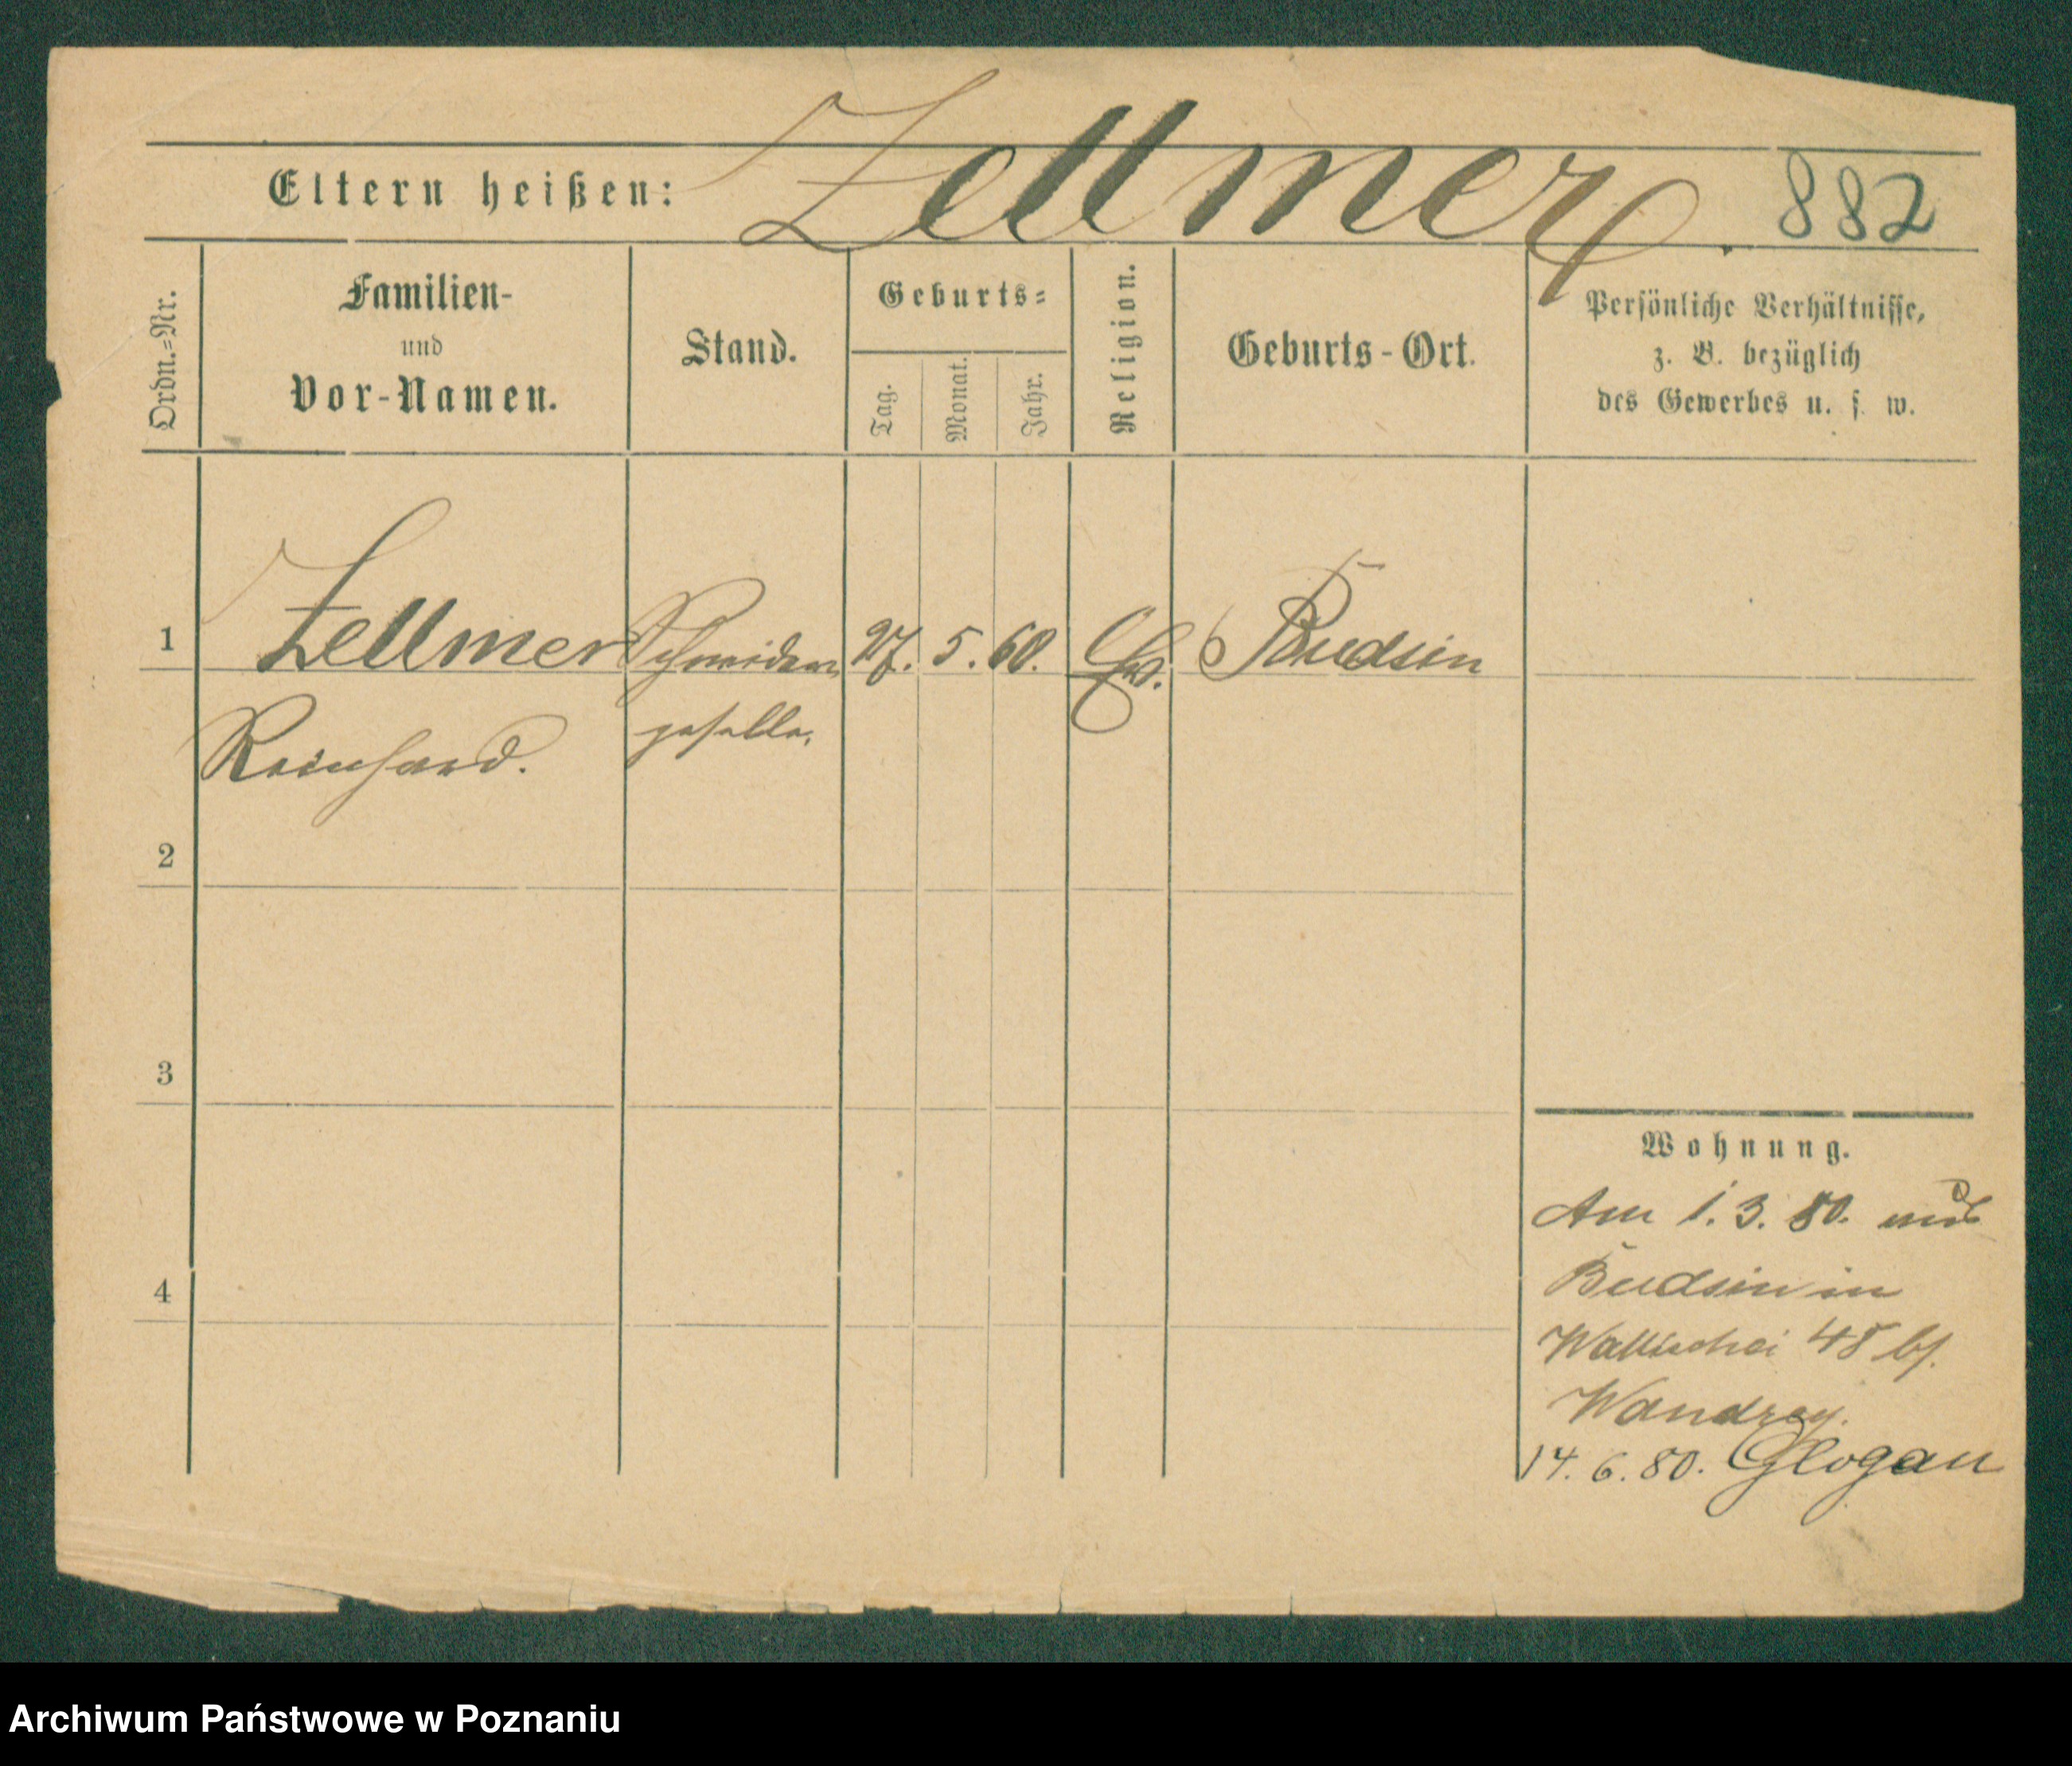 Eltern heißen: Zellmer. 882
Ordn.-Nr.
Familien-
und
Vor-Namen.
Stand.
Geburts-
Tag.
Monat.
Jahr.
Religion.
Geburts-Ort.
Persönliche Verhältnisse,
z. B. bezüglich
des Gewerbes u. s. w.
1 Zellmer Schneider 27. 5. 60. Budsin
Reinhard. geselle.
2
3
4
Wohnung.
Am 1. 3. 80. aus
Budsin in
Wallischei 48 bf.
Wandrey.
14. 6. 80. Glogau
Archiwum Państwowe w Poznaniu